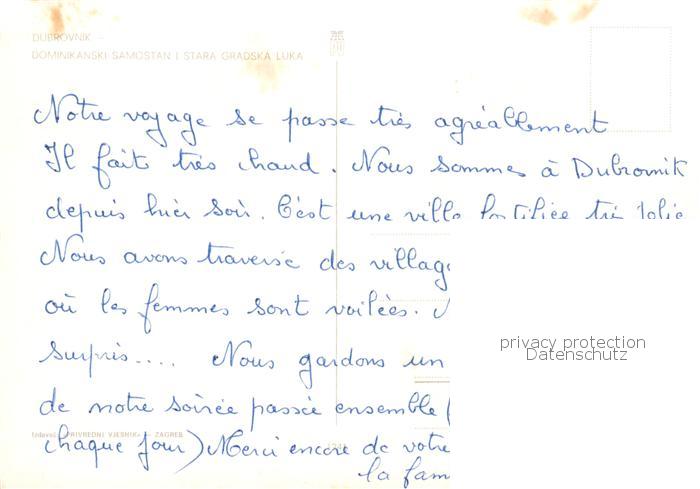 DUBROVNIK –
DOMINIKANSKI SAMOSTAN I STARA GRADSKA LUKA
Notre voyage se passe très agréablement
Il fait très chaud. Nous sommes à Dubrovnik
depuis hier soir. C'est une ville fortifiée très jolie
Nous avons traversé des villag
où les femmes sont voilées.
surpris.... Nous gardons un
de notre soirée passée ensemble (
chaque jour) Merci encore de votre
la fam
privacy protection
Datenschutz
PRIVREDNI VJESNIK — ZAGREB